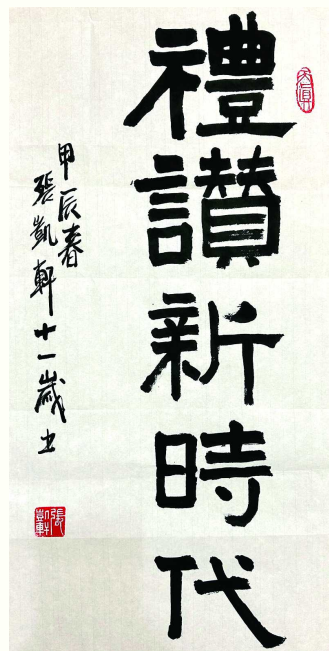 禮讃新時代
甲辰春
張凱軒十一歲书
張凱軒